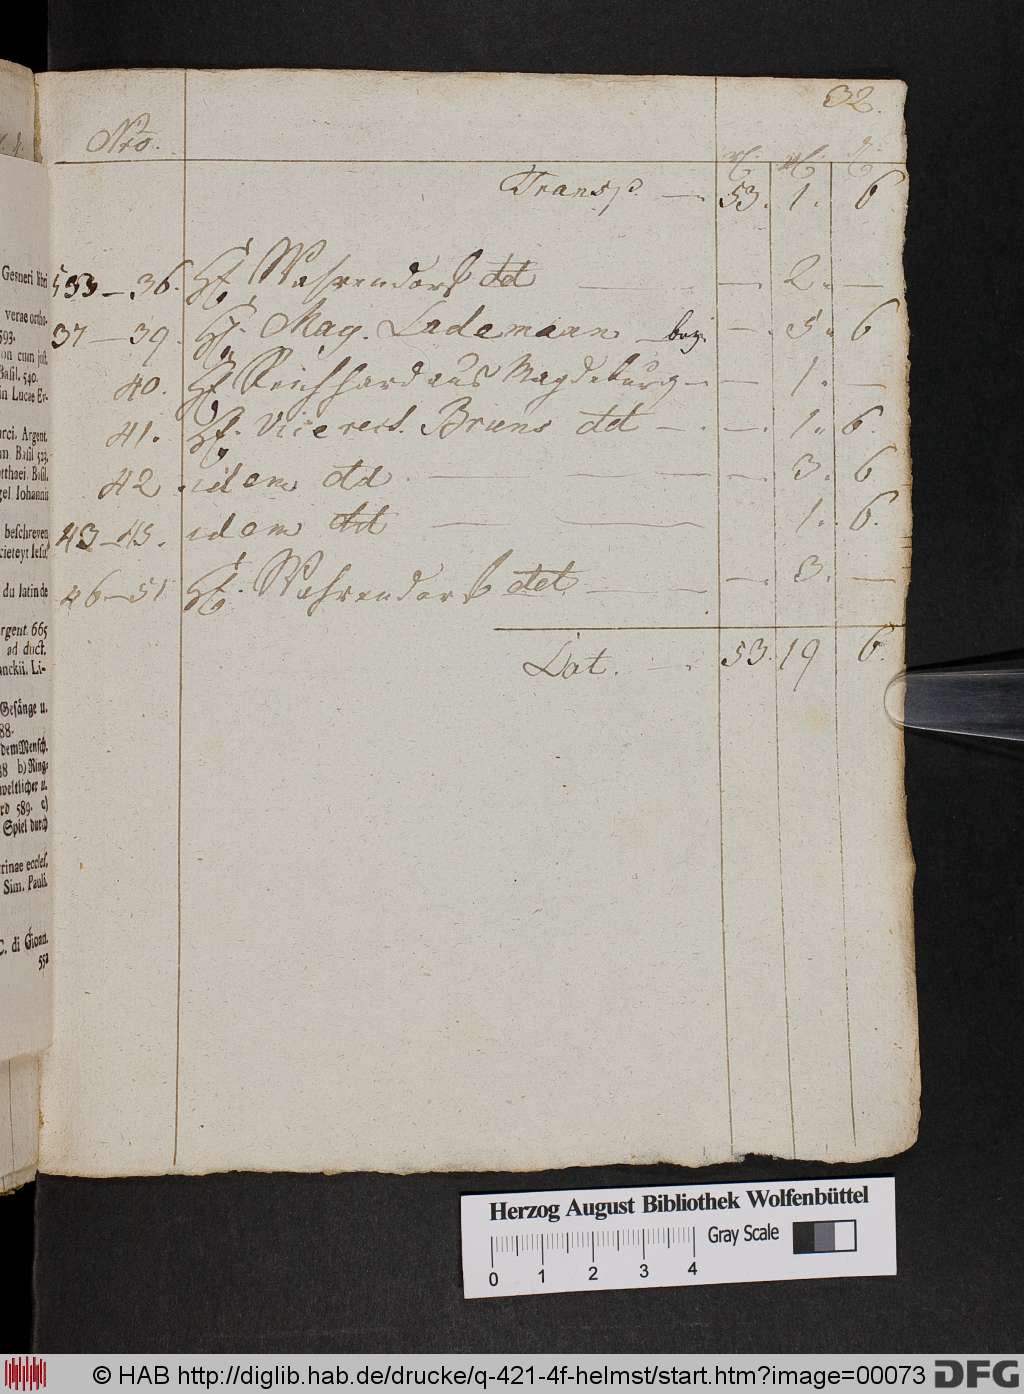 32.
Nro.
Transp. — 53. 1. 6
533—36. H. Wahrendorf dd — — 2. —
37—39. H. Mag. Lademann bez. — 5. 6
40. H. Reichhard aus Magdeburg — — 1. —
41. H. Vicerect. Bruns dd — — 1. 6.
42. idem dd — — 3. 6
43—45. idem dd — — 1. 6.
46—51 H. Wahrendorf ddt — — 3. —
Lat. — 53. 19 6.
Gesneri libri
verae ortho-
593.
Basil. 540.
in Lucae Er-
Argent.
Basil 523.
Basil.
Iohannis
beschreven
du latin de
Argent. 665
ad duct.
Li-
Gesänge u.
88.
dem Mensch.
b) Ring-
weltlicher u.
589. c)
Spiel durch
eccles.
Sim. Pauli.
C. di Giouan.
55a
Herzog August Bibliothek Wolfenbüttel
Gray Scale
0 1 2 3 4
© HAB http://diglib.hab.de/drucke/q-421-4f-helmst/start.htm?image=00073
DFG